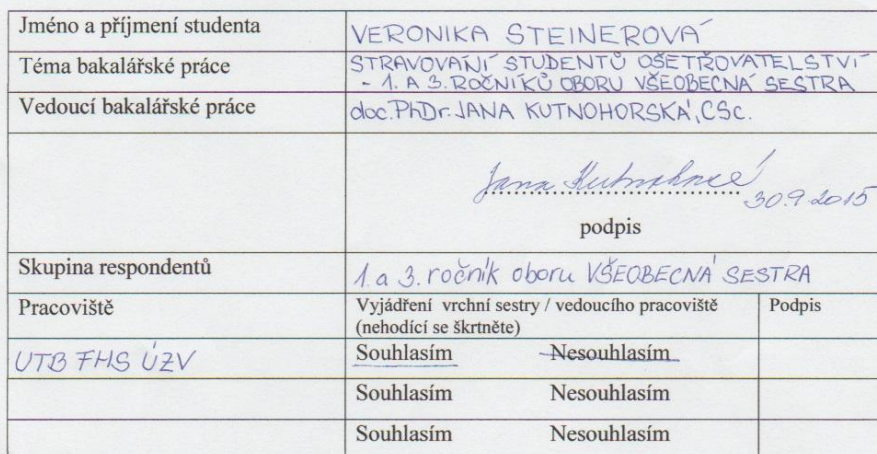 Jméno a příjmení studenta
VERONIKA STEINEROVÁ
Téma bakalářské práce
STRAVOVÁNÍ STUDENTŮ OŠETŘOVATELSTVÍ
- 1. A 3. ROČNÍKŮ OBORU VŠEOBECNÁ SESTRA
Vedoucí bakalářské práce
doc. PhDr. JANA KUTNOHORSKÁ, CSc.
Jana Kutnohorská 30.9.2015
podpis
Skupina respondentů
1. a 3. ročník oboru VŠEOBECNÁ SESTRA
Pracoviště
Vyjádření vrchní sestry / vedoucího pracoviště
(nehodící se škrtněte)
Podpis
UTB FHS ÚZV
Souhlasím Nesouhlasím
Souhlasím Nesouhlasím
Souhlasím Nesouhlasím